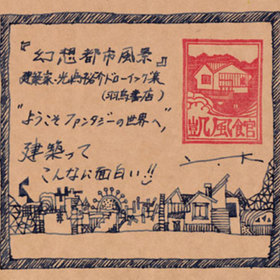 『幻想都市風景』
建築家・光嶋裕介ドローイング集
(羽鳥書店)
"ようこそファンタジーの世界へ"
建築って
こんなに面白い!!
凱風館